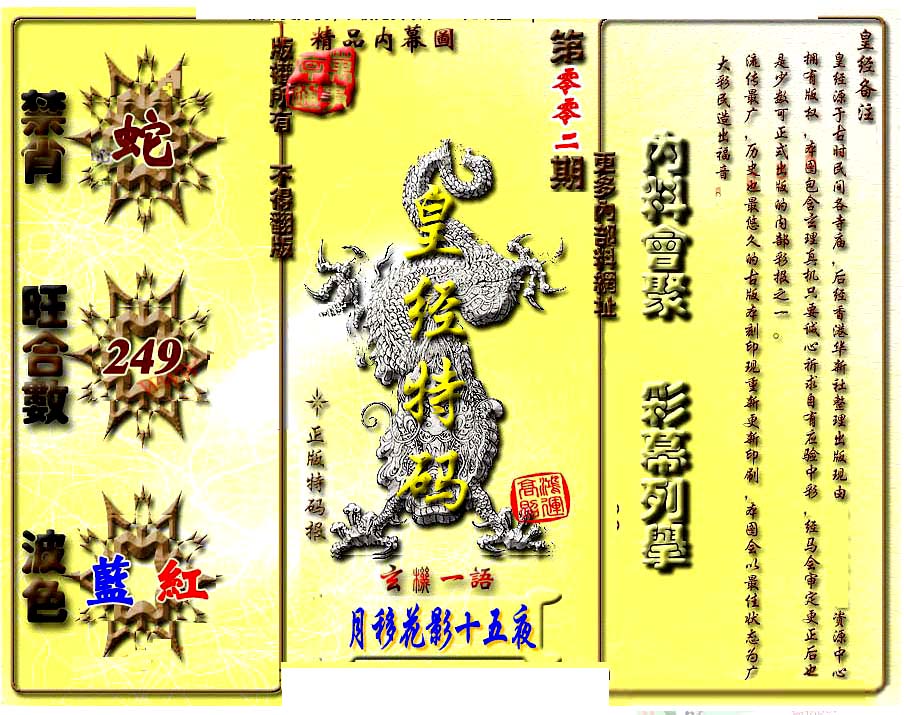 精品内幕圖
第零零二期
版權所有 不得翻版
更多內部料網址
禁肖
蛇
旺合數
249
波色
藍 紅
皇经特码
正版特码报
鴻運高照
玄機一語
月移花影十五夜
内料會聚
彩幕列舉
皇经备注
皇经源于古时民间各寺庙，后经香港华新社整理出版现由 资源中心
拥有版权，本图包含玄理真机只要诚心祈求自有应验中彩，经马会审定更正后也
是少数可正式出版的内部彩报之一。
流传最广，历史也最悠久的古版本刻印现重新更新印刷，本图会以最佳状态为广
大彩民造出福音